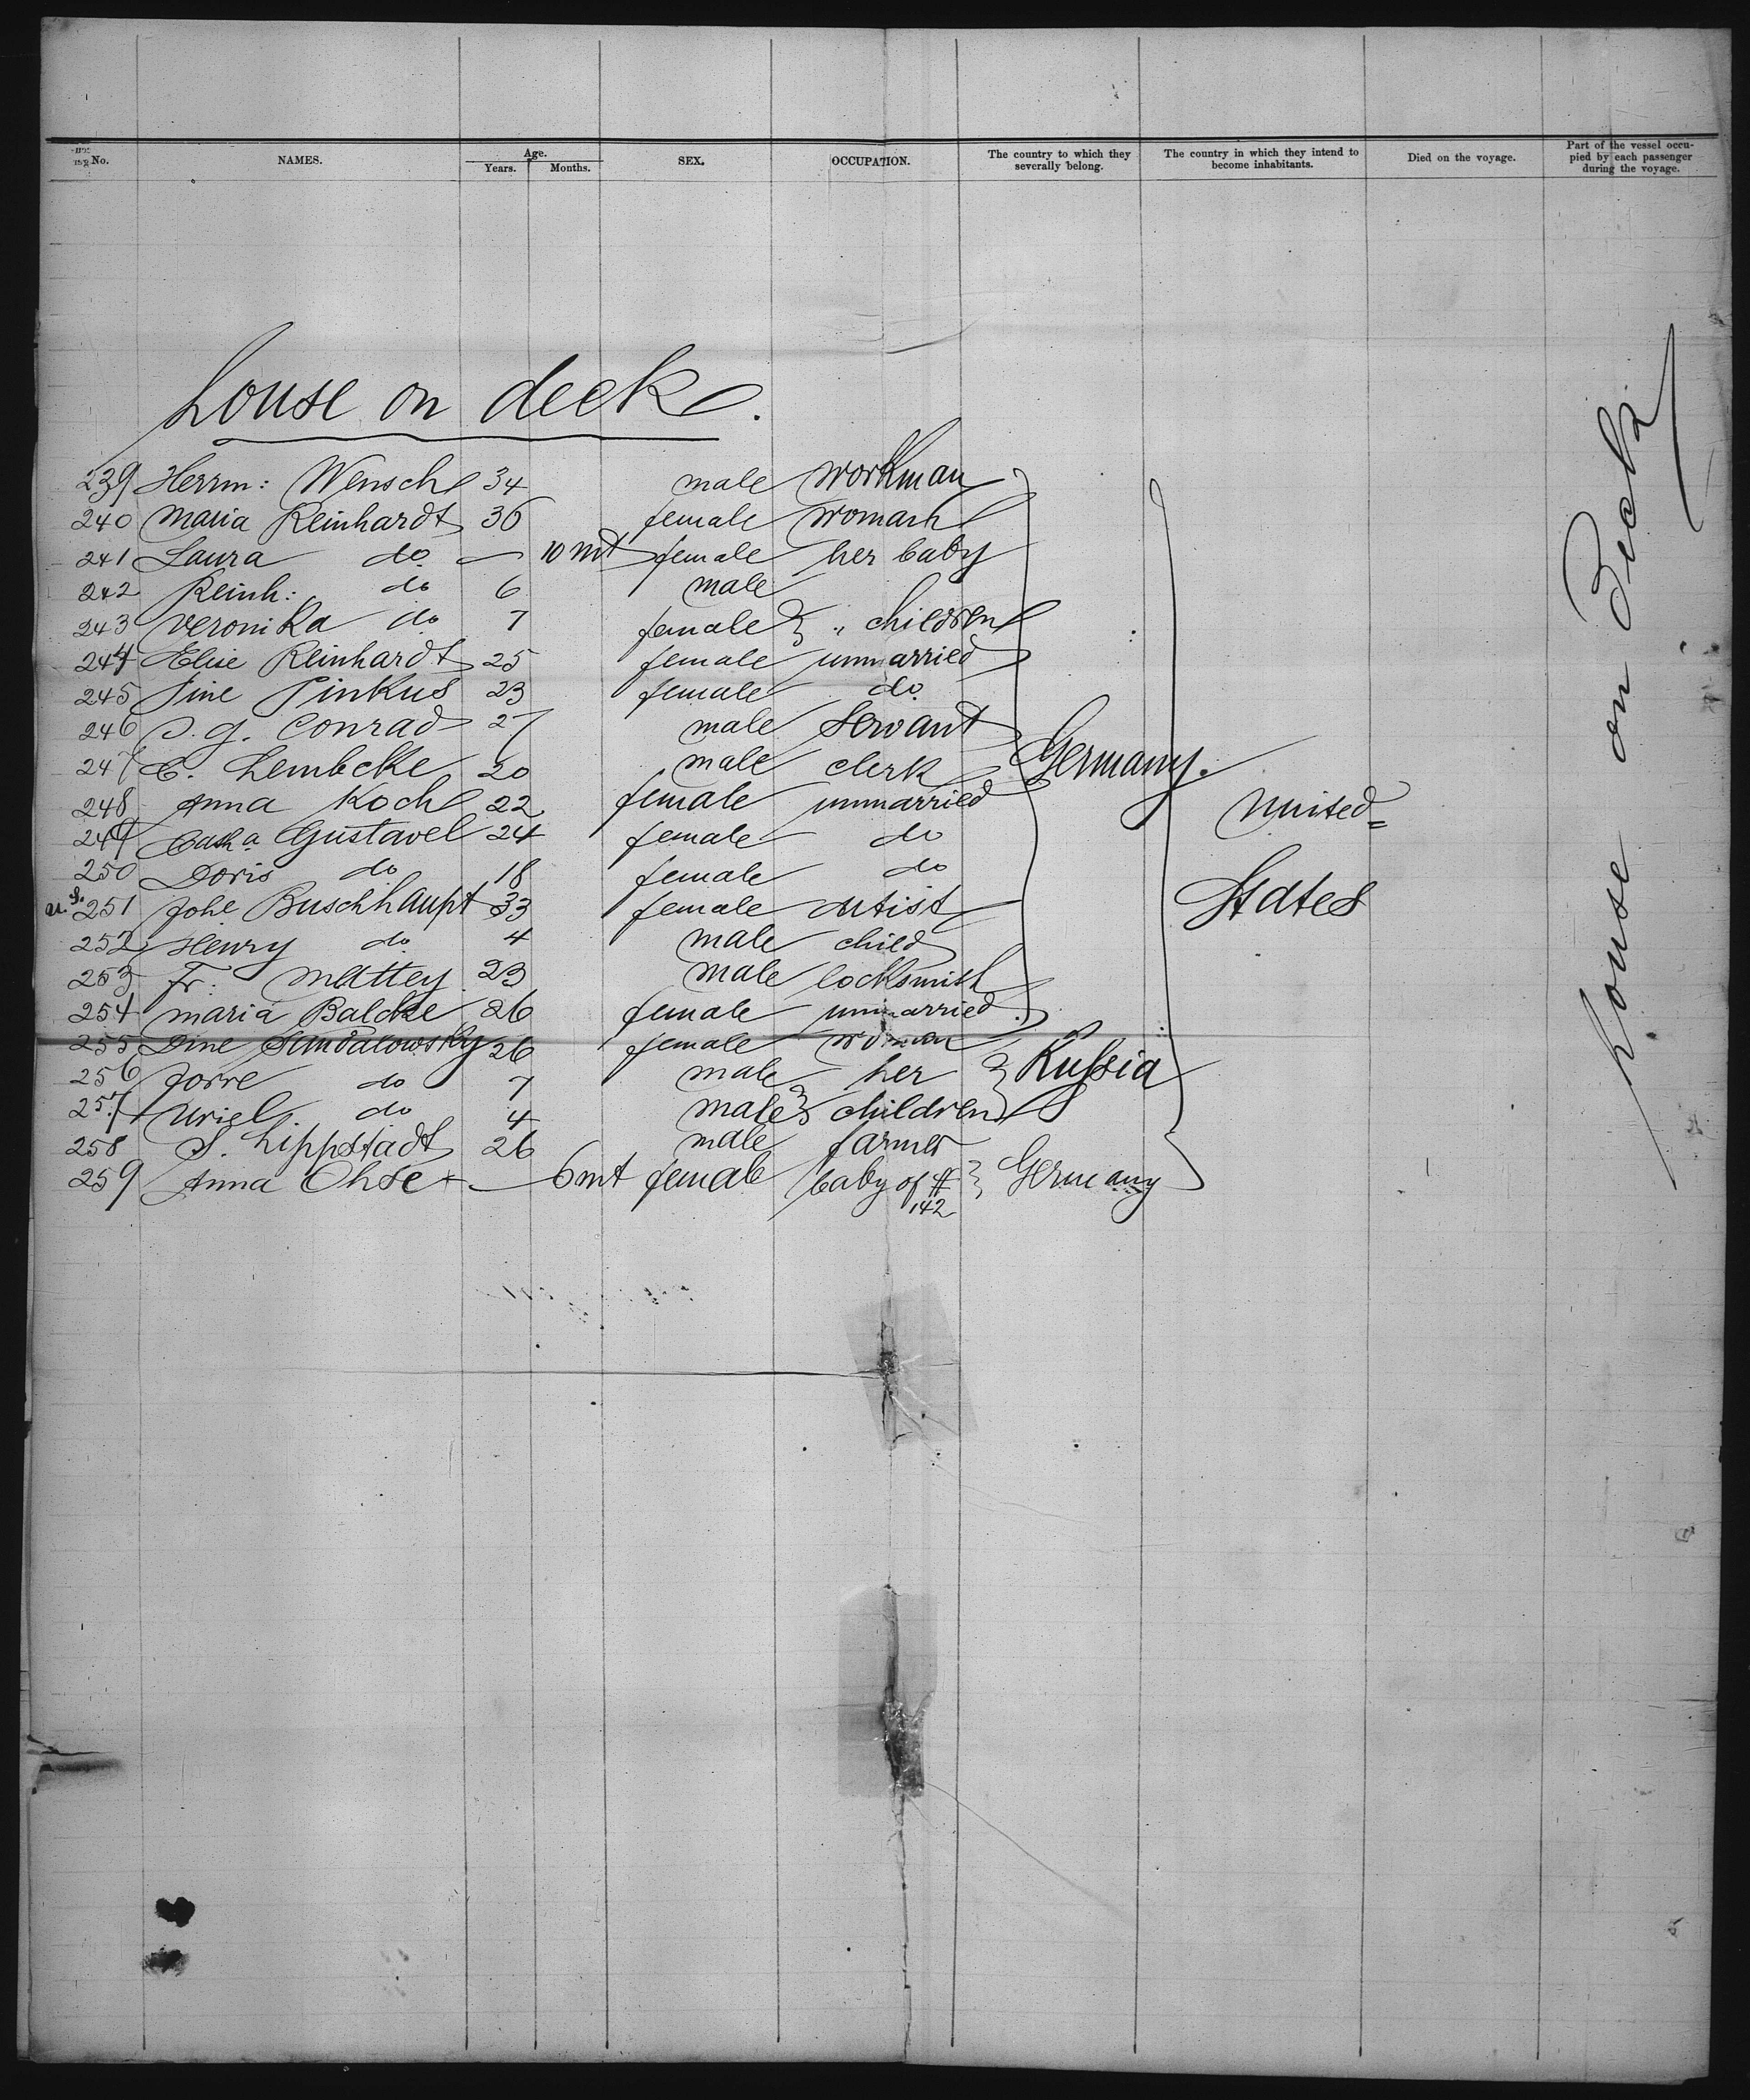 No. NAMES. Age. Years. Months. SEX. OCCUPATION. The country to which they severally belong. The country in which they intend to become inhabitants. Died on the voyage. Part of the vessel occupied by each passenger during the voyage.
house on deck.
239 Herrm: Wensch 34 male workman
240 Maria Reinhardt 36 female woman
241 Laura do — 10 mt female her baby
242 Reinh: do 6 male
243 Veronika do 7 female } " children
244 Elise Reinhardt 25 female unmarried
245 Sine Pinkus 23 female do
246 J. G. Conrad 27 male servant
247 C. Lembcke 20 male clerk Germany.
248 Anna Koch 22 female unmarried United=
249 Gustavel 24 female do
250 Doris do 18 female do
U.S. 251 Johe Buschhaupt 33 female artist States
252 Henry do 4 male child
253 Fr: Mattey 23 male locksmith
254 Maria Balcke 26 female unmarried
255 Dine Sandalowsky 26 female woman
256 Jorre do 7 male her } Russia
257 Uriel do 4 male } children
258 S. Lippstadt 26 male farmer
259 Anna Ohse — 6 mt female baby of # } Germany
142
house on Deck